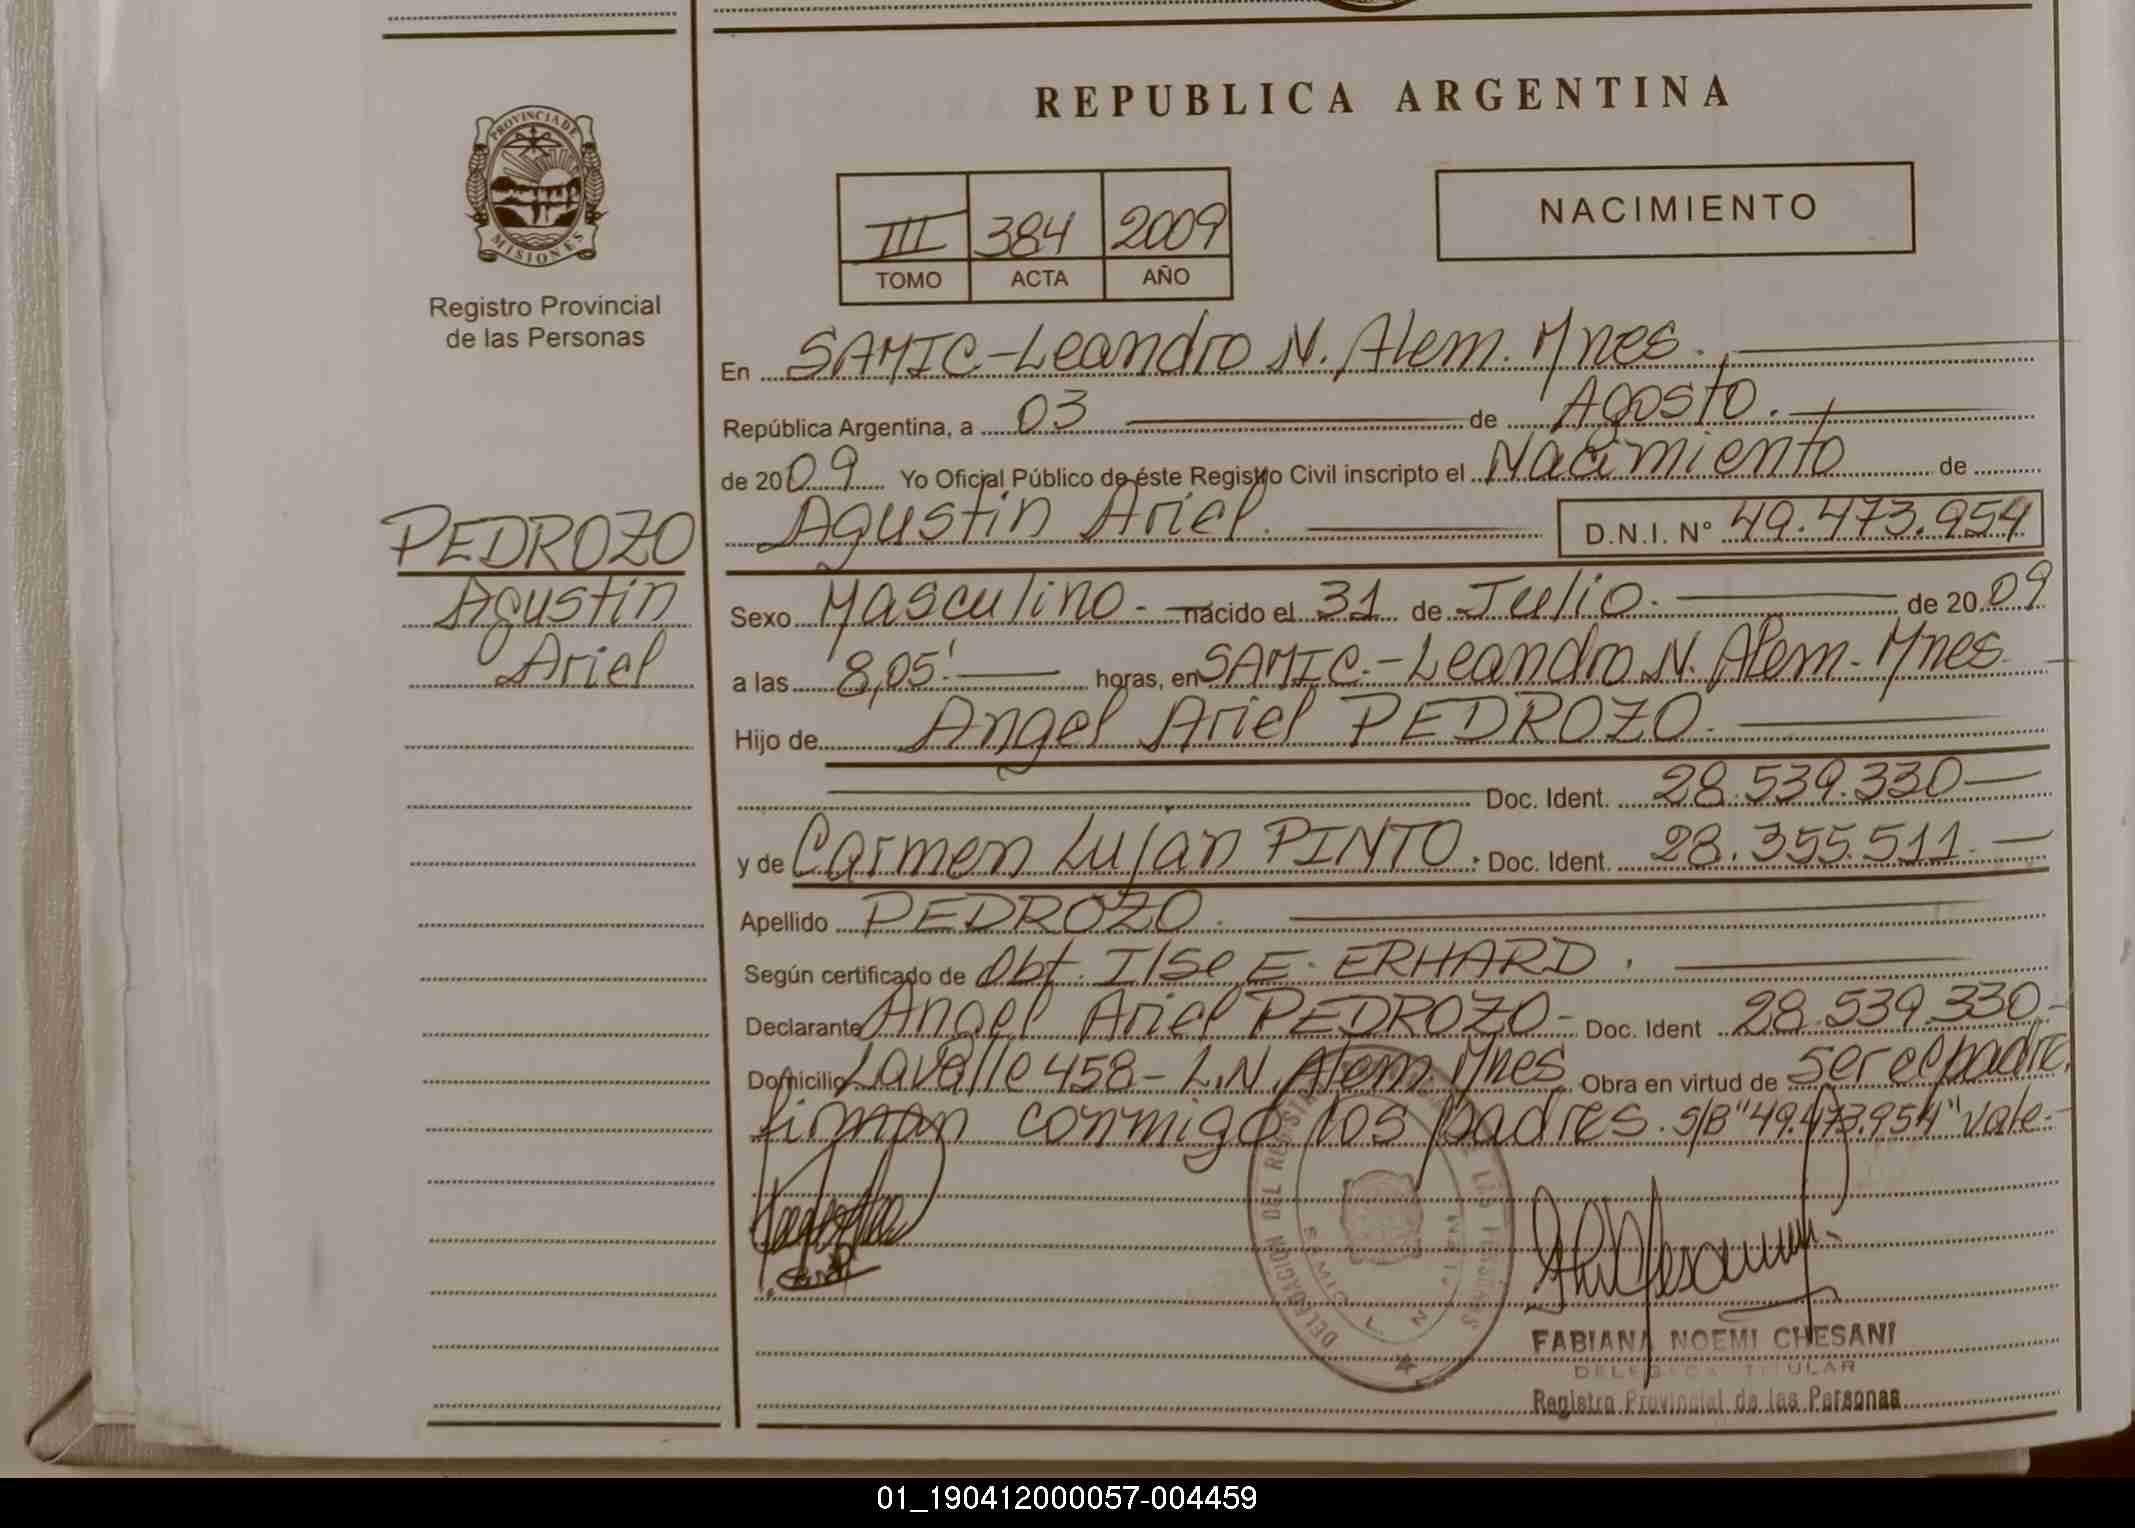 REPUBLICA ARGENTINA
PROVINCIA DE
MISIONES
Registro Provincial
de las Personas
III 384 2009
TOMO ACTA AÑO
NACIMIENTO
En SAMIC-Leandro N. Alem. Mnes.
República Argentina, a 03 de Agosto.
de 2009 Yo Oficial Público de éste Registro Civil inscripto el Nacimiento de
Agustín Ariel. D.N.I. N° 49.473.954
PEDROZO
Agustín
Ariel
Sexo Masculino. nacido el 31 de Julio. de 2009
a las 8,05'. horas, en SAMIC.-Leandro N. Alem. Mnes
Hijo de Angel Ariel PEDROZO.
Doc. Ident. 28.539.330
y de Carmen Luján PINTO. Doc. Ident. 28.355.511.
Apellido PEDROZO.
Según certificado de Obt. Ilse E. ERHARD.
Declarante Angel Ariel PEDROZO- Doc. Ident 28.539.330-
Domicilio Lavalle 458- L.N. Alem. Mnes Obra en virtud de ser el padre.
firman conmigo los padres. s/B "49.473.954" vale-
DELEGACION DEL
SAMIC L. N. ALEM
FABIANA NOEMI CHESANI
DELEGADA TITULAR
Registro Provincial de las Personas
01_190412000057-004459